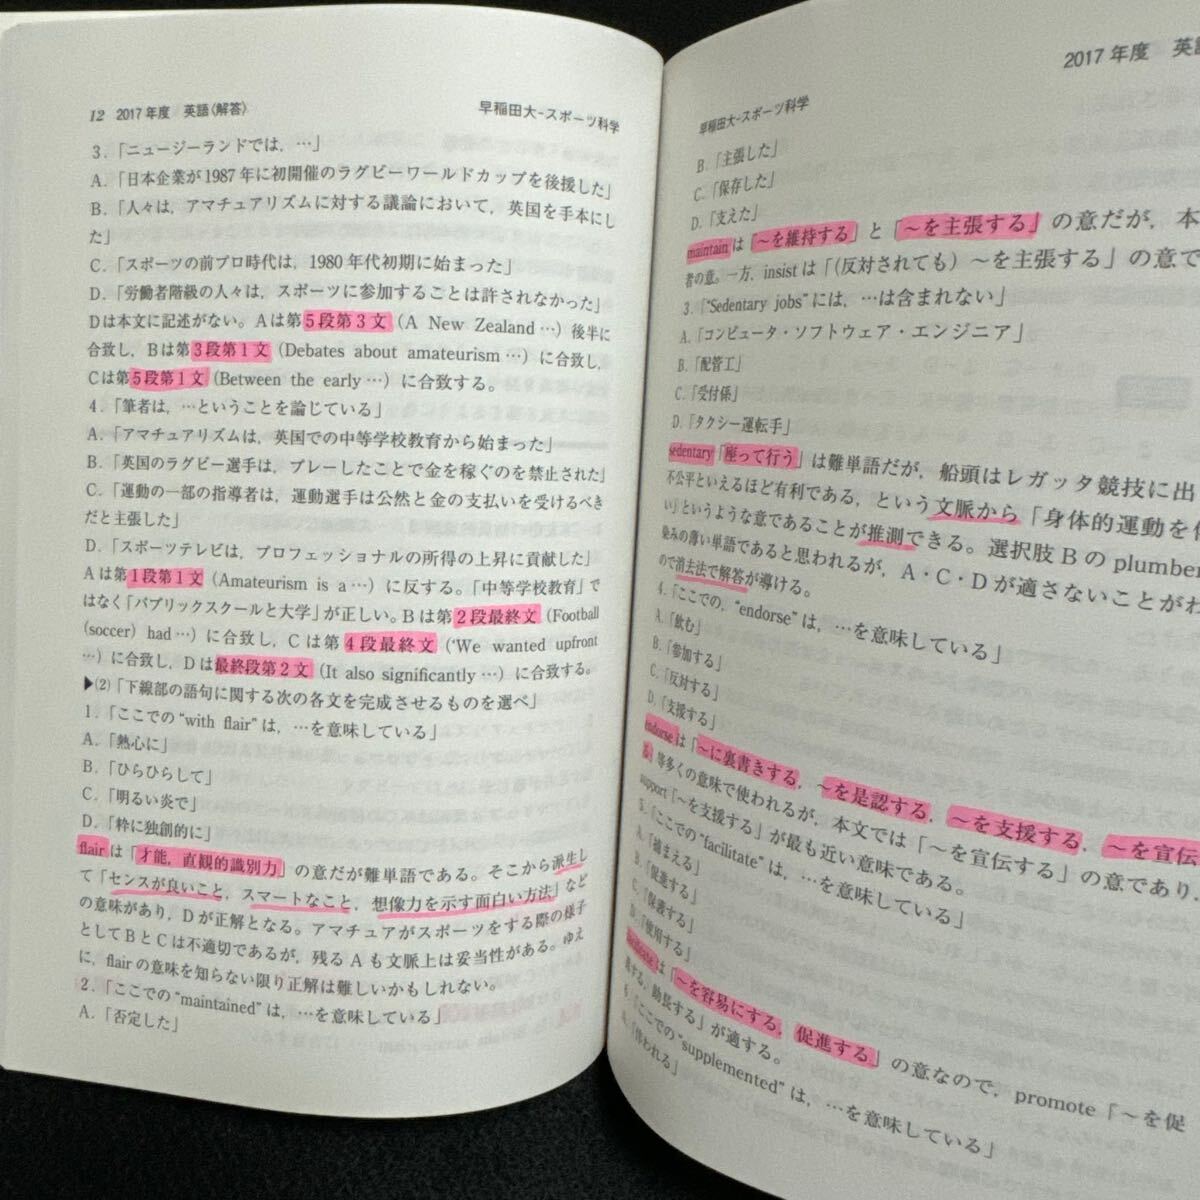 12 2017年度 英語〈解答〉 早稲田大-スポーツ科学
3．「ニュージーランドでは，…」
A．「日本企業が1987年に初開催のラグビーワールドカップを後援した」
B．「人々は，アマチュアリズムに対する議論において，英国を手本にし
た」
C．「スポーツの前プロ時代は，1980年代初期に始まった」
D．「労働者階級の人々は，スポーツに参加することは許されなかった」
Dは本文に記述がない。Aは第5段第3文（A New Zealand …）後半に
合致し，Bは第3段第1文（Debates about amateurism …）に合致し，
Cは第5段第1文（Between the early …）に合致する。
4．「筆者は，…ということを論じている」
A．「アマチュアリズムは，英国での中等学校教育から始まった」
B．「英国のラグビー選手は，プレーしたことで金を稼ぐのを禁止された」
C．「運動の一部の指導者は，運動選手は公然と金の支払いを受けるべき
だと主張した」
D．「スポーツテレビは，プロフェッショナルの所得の上昇に貢献した」
Aは第1段第1文（Amateurism is a …）に反する。「中等学校教育」で
はなく「パブリックスクールと大学」が正しい。Bは第2段最終文（Football
(soccer) had …）に合致し，Cは第4段最終文（“We wanted upfront
…）に合致し，Dは最終段第2文（It also significantly …）に合致する。
▶(2)「下線部の語句に関する次の各文を完成させるものを選べ」
1．「ここでの“with flair”は，…を意味している」
A．「熱心に」
B．「ひらひらして」
C．「明るい炎で」
D．「粋に独創的に」
flairは「才能，直観的識別力」の意だが難単語である。そこから派生し
て「センスが良いこと，スマートなこと，想像力を示す面白い方法」など
の意味があり，Dが正解となる。アマチュアがスポーツをする際の様子
としてBとCは不適切であるが，残るAも文脈上は妥当性がある。ゆえ
に，flairの意味を知らない限り正解は難しいかもしれない。
2．「ここでの“maintained”は，…を意味している」
A．「否定した」
2017年度 英
早稲田大-スポーツ科学
B．「主張した」
C．「保存した」
D．「支えた」
maintainは「～を維持する」と「～を主張する」の意だが，本
者の意。一方，insistは「（反対されても）～を主張する」の意で
3．「“Sedentary jobs”には，…は含まれない」
A．「コンピュータ・ソフトウェア・エンジニア」
B．「配管工」
C．「受付係」
D．「タクシー運転手」
sedentary「座って行う」は難単語だが，船頭はレガッタ競技に出
不公平といえるほど有利である，という文脈から「身体的運動を
い」というような意であることが推測できる。選択肢Bのplumber
染みの薄い単語であると思われるが，A・C・Dが適さないことがわ
ので消去法で解答が導ける。
4．「ここでの，“endorse”は，…を意味している」
A．「飲む」
B．「参加する」
C．「反対する」
D．「支援する」
endorseは「～に裏書きする，～を是認する，～を支援する，～を宣伝
る」等多くの意味で使われるが，本文では「～を宣伝する」の意であり，
support「～を支援する」が最も近い意味である。
5．「ここでの“facilitate”は，…を意味している」
A．「捕まえる」
B．「促進する」
C．「保護する」
D．「使用する」
facilitateは「～を容易にする，促進する」の意なので，promote「～を促
進する，助長する」が適する。
6．「ここでの“supplemented”は，…を意味している」
A．「伴われる」